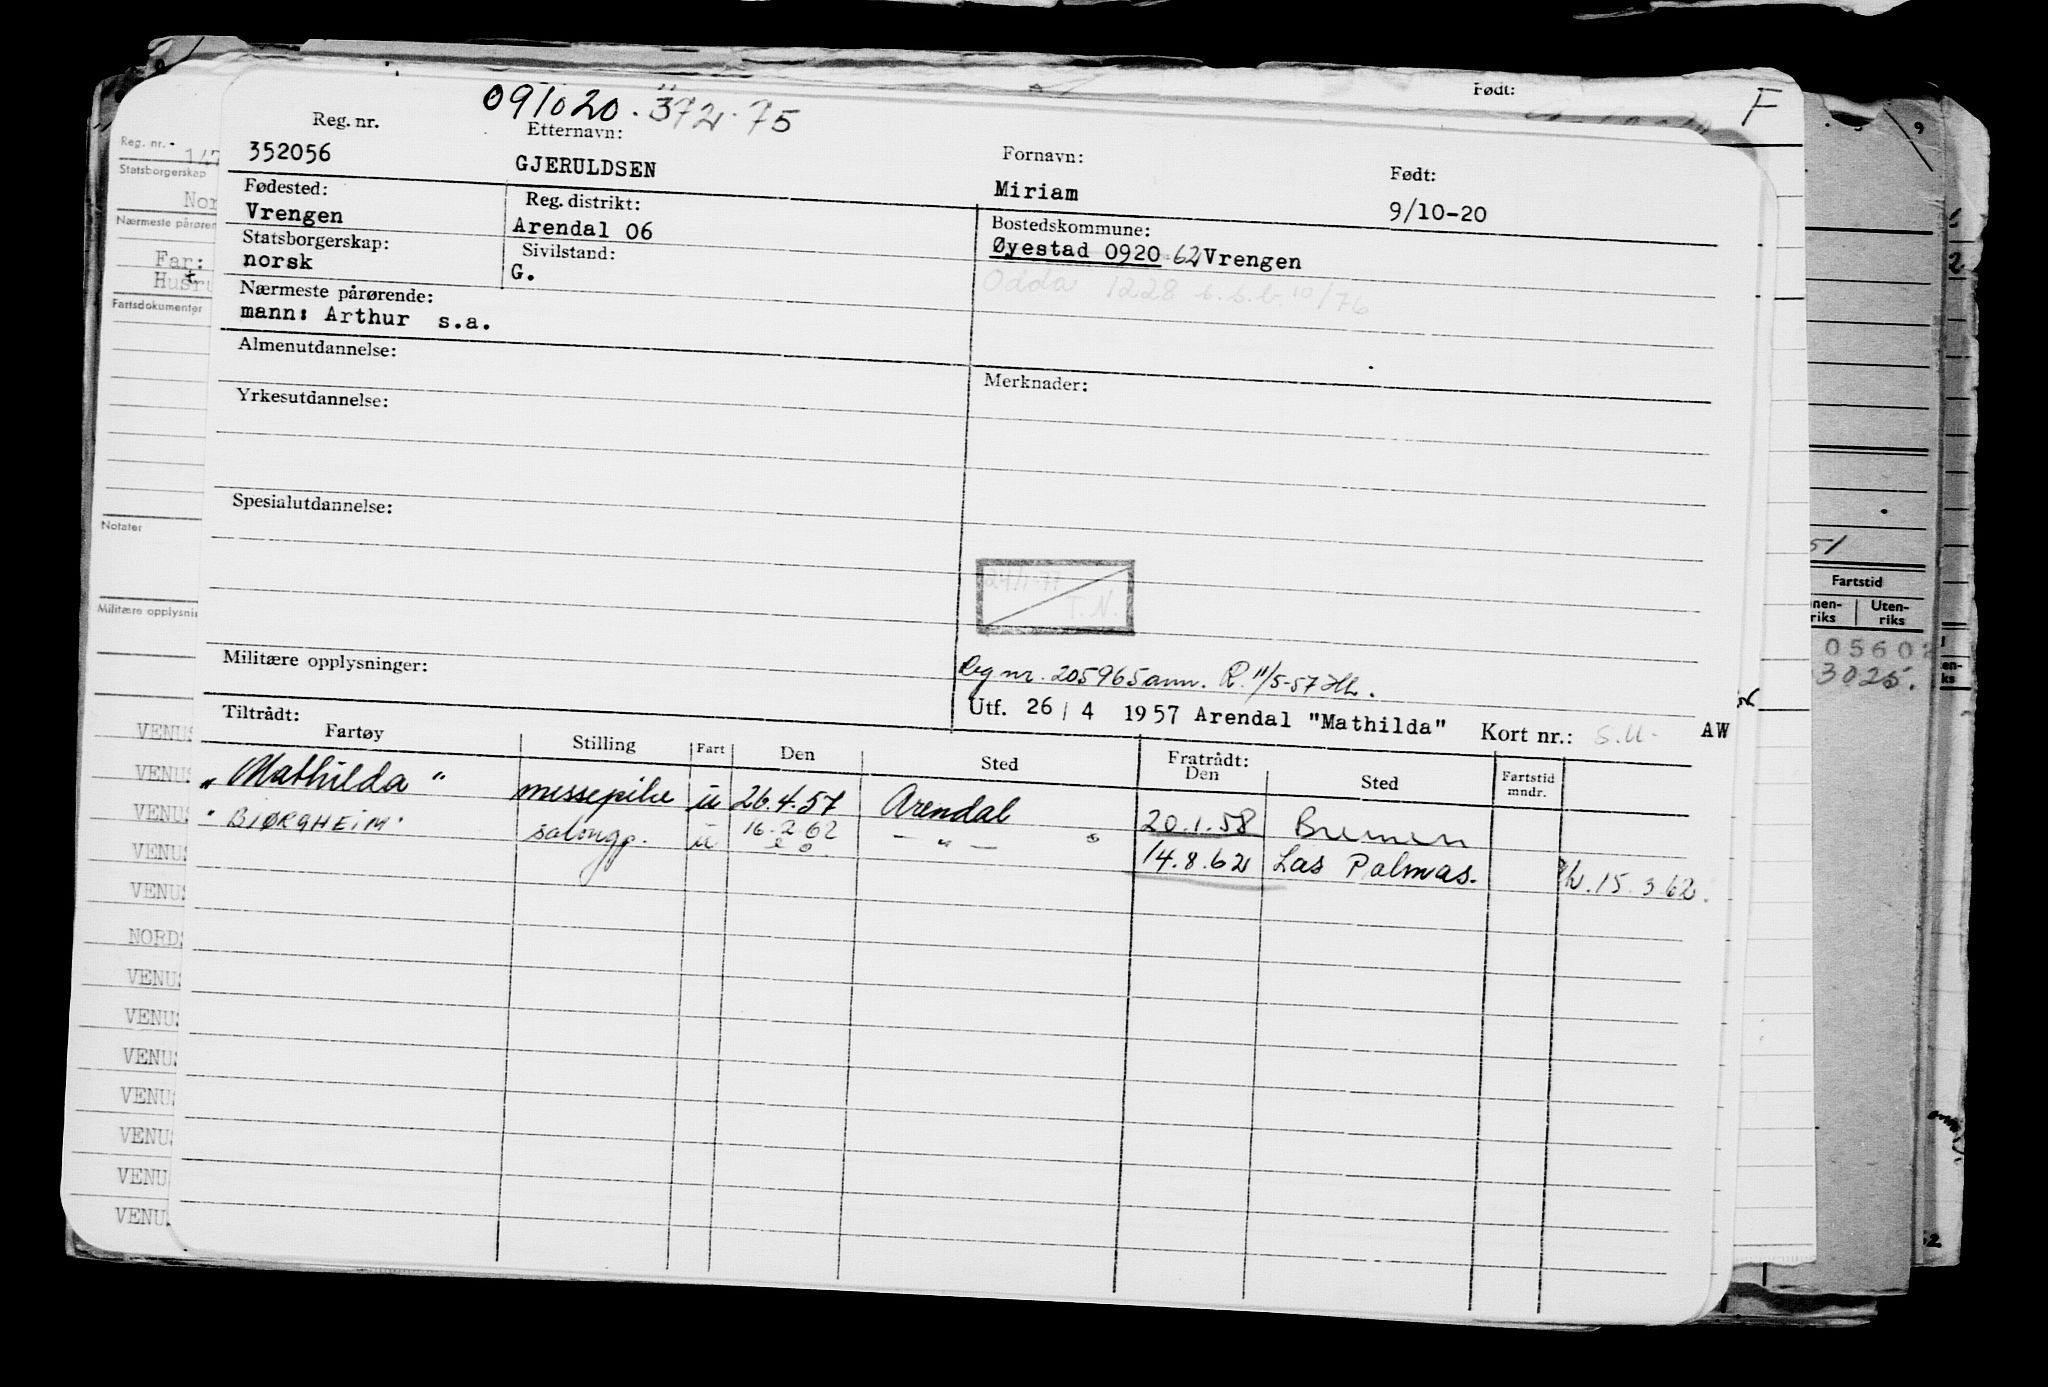 091020.37275
Født:
F
Reg. nr.
Etternavn:
Fornavn:
Født:
352056
GJERULDSEN
Miriam
9/10-20
Fødested:
Reg. distrikt:
Bostedskommune:
Vrengen
Arendal 06
Øyestad 0920 62 Vrengen
Statsborgerskap:
Sivilstand:
norsk
G.
Odda 1228 b.s.b. 10/76
Nærmeste pårørende:
mann: Arthur s.a.
Almenutdannelse:
Merknader:
Yrkesutdannelse:
Spesialutdannelse:
T.N.
Militære opplysninger:
Reg nr. 205965 ann. R. 11/5-57
Utf. 26 / 4 1957 Arendal "Mathilda" Kort nr.: S.U. AW
Tiltrådt:
Fratrådt:
Fartøy
Stilling
Fart
Den
Sted
Den
Sted
Fartstid mndr.
"Mathilda" messepike u 26.4.57 Arendal 20.1.58 Bremen
"BJØRGHEIM" salongp. u 16.2.62 — " — 14.8.62 Las Palmas. 15.3.62.
Reg. nr.
Statsborgerskap
Nor
Nærmeste pårøren
Far:
Hustru
Fartsdokumenter
Notater
Militære opplysnin
VENUS
VENUS
VENUS
VENUS
VENUS
NORDS
VENUS
VENUS
VENUS
VENUS
VENUS
VENU
VENUS
51
Fartstid
nen-
riks
Uten-
riks
05602
3025.
en-
ks